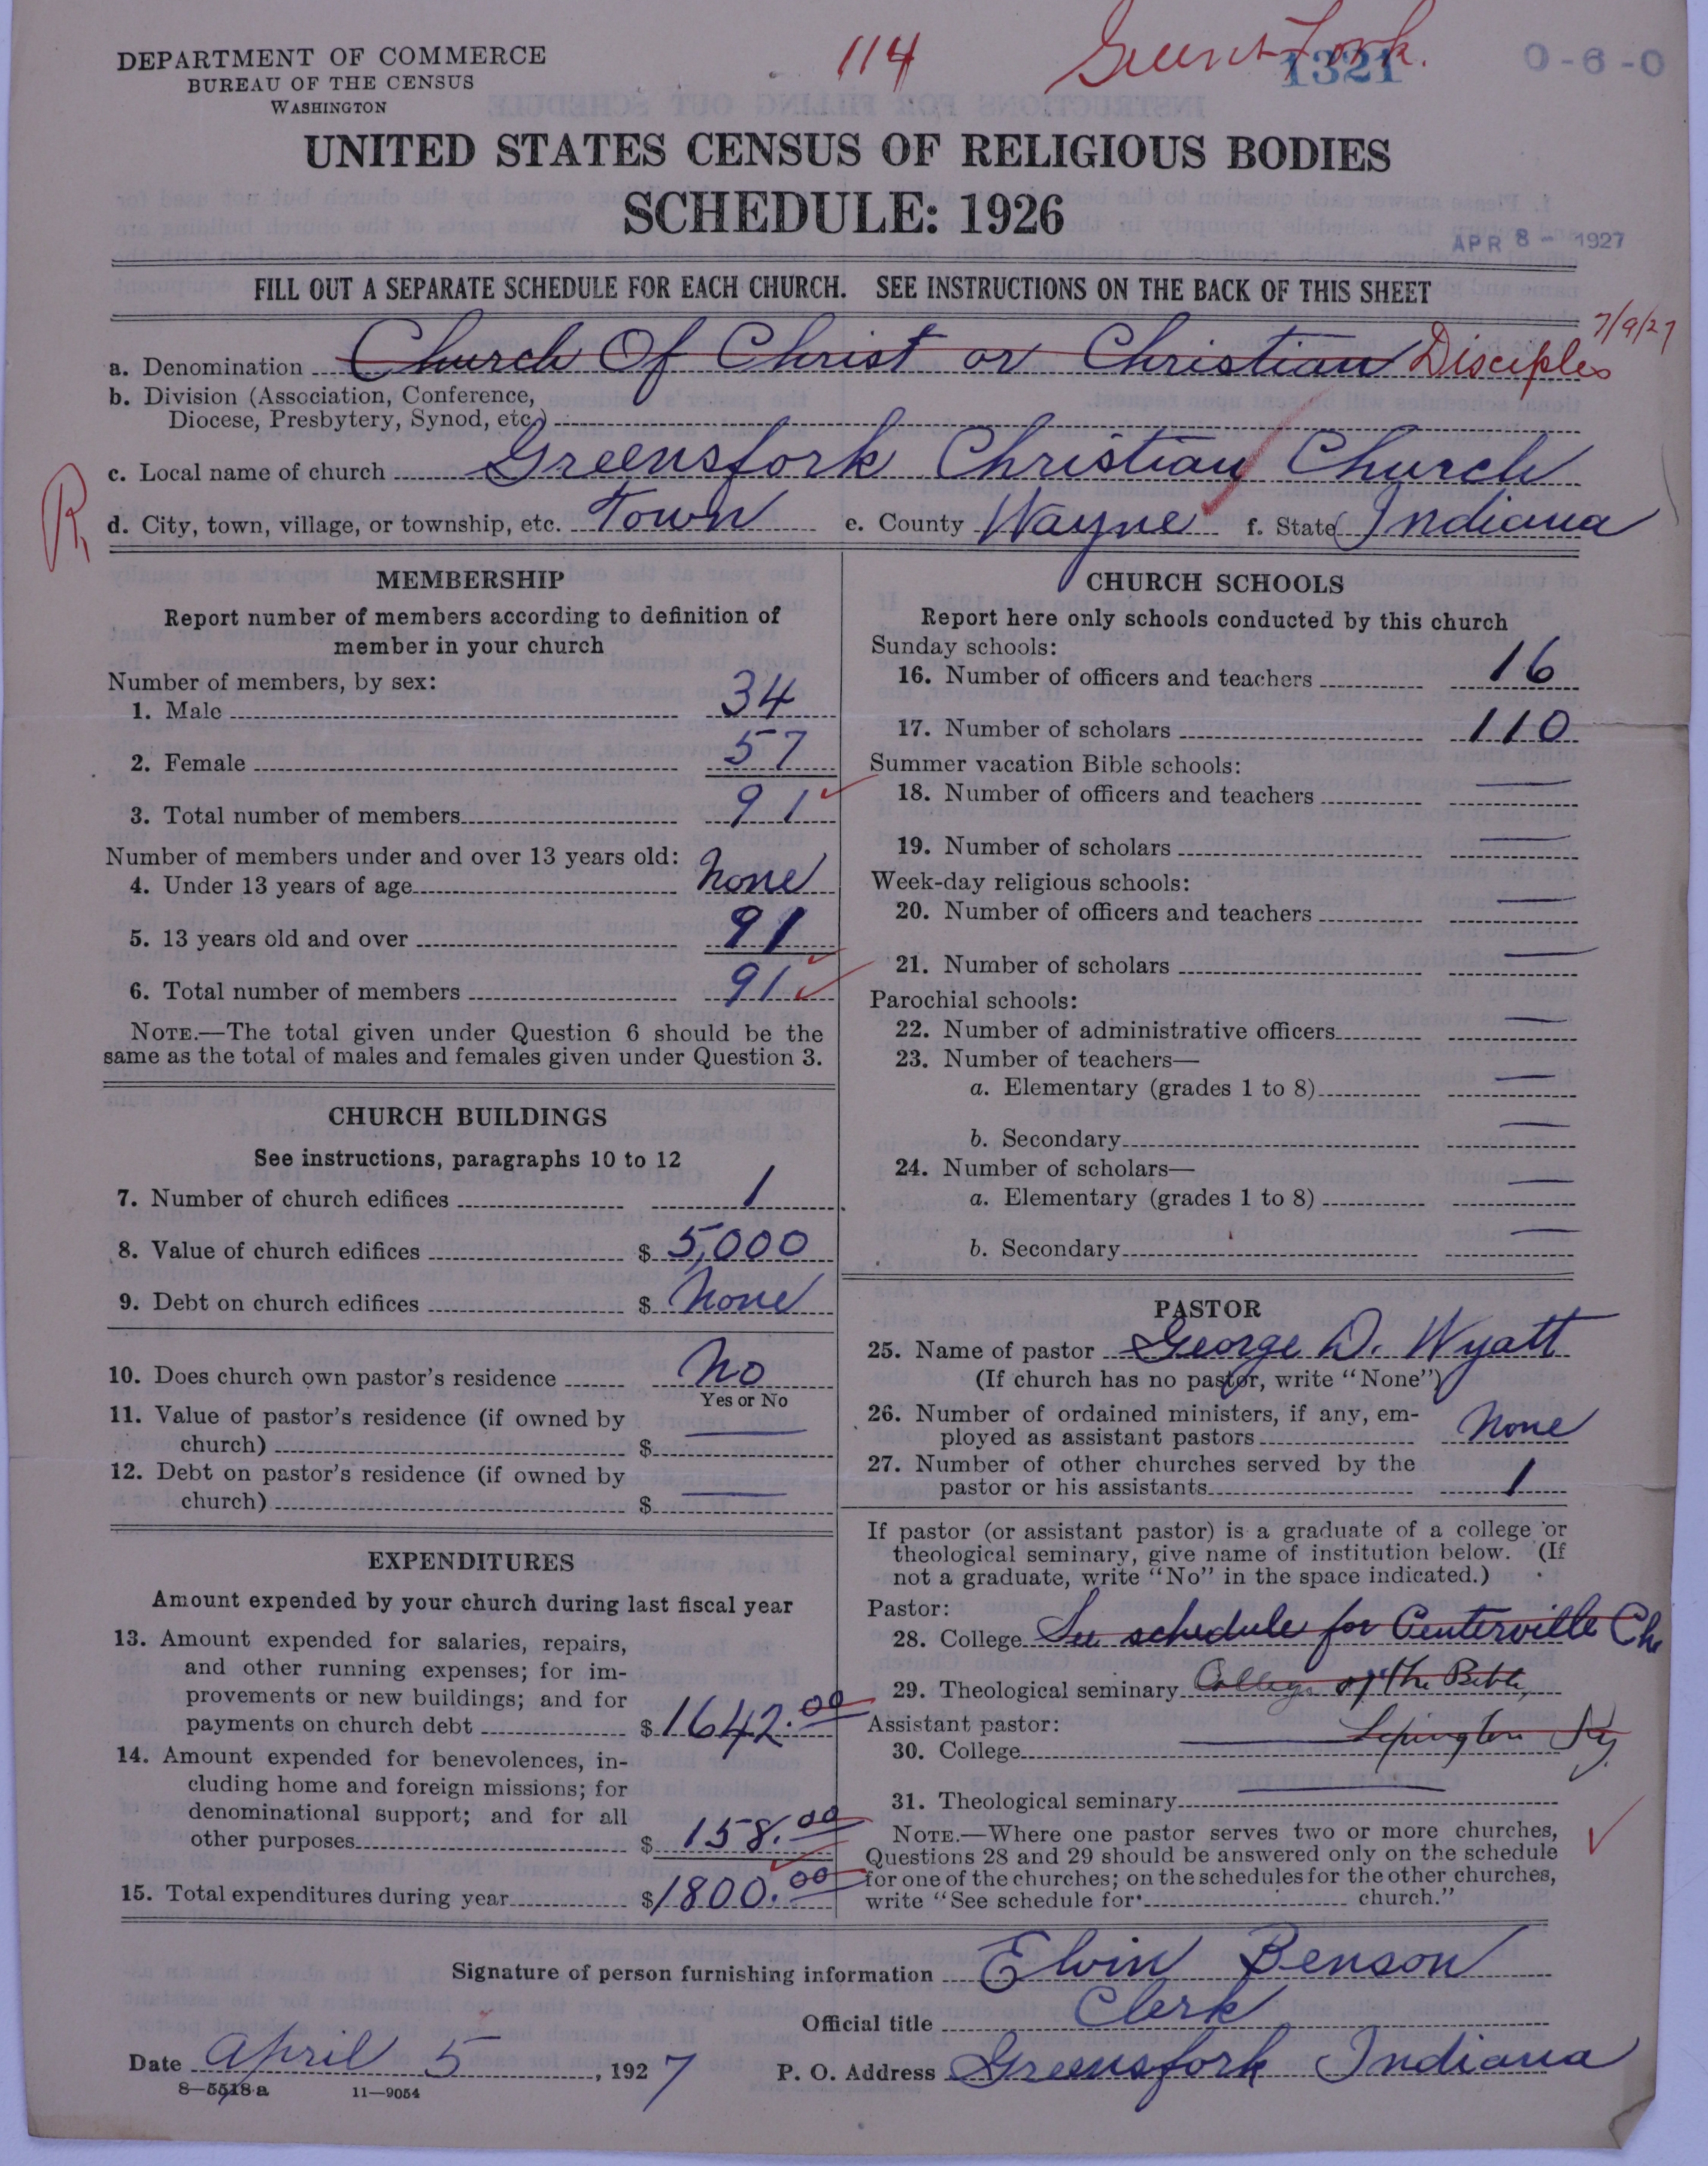 DEPARTMENT OF COMMERCE
BUREAU OF THE CENSUS
WASHINGTON
114
Greens Fork.
1321
0-6-0
UNITED STATES CENSUS OF RELIGIOUS BODIES
SCHEDULE: 1926
APR 8 - 1927
FILL OUT A SEPARATE SCHEDULE FOR EACH CHURCH. SEE INSTRUCTIONS ON THE BACK OF THIS SHEET
7/9/27
a. Denomination Church Of Christ or Christian Disciples
b. Division (Association, Conference,
Diocese, Presbytery, Synod, etc.)
c. Local name of church Greensfork Christian Church
R
d. City, town, village, or township, etc. Town e. County Wayne f. State Indiana
MEMBERSHIP
Report number of members according to definition of
member in your church
Number of members, by sex:
1. Male 34
2. Female 57
3. Total number of members 91
Number of members under and over 13 years old:
4. Under 13 years of age None
5. 13 years old and over 91
6. Total number of members 91
NOTE.—The total given under Question 6 should be the
same as the total of males and females given under Question 3.
CHURCH BUILDINGS
See instructions, paragraphs 10 to 12
7. Number of church edifices 1
8. Value of church edifices $ 5,000
9. Debt on church edifices $ None
10. Does church own pastor's residence No
Yes or No
11. Value of pastor's residence (if owned by
church) $
12. Debt on pastor's residence (if owned by
church) $
EXPENDITURES
Amount expended by your church during last fiscal year
13. Amount expended for salaries, repairs,
and other running expenses; for im-
provements or new buildings; and for
payments on church debt $ 1642.00
14. Amount expended for benevolences, in-
cluding home and foreign missions; for
denominational support; and for all
other purposes $ 158.00
15. Total expenditures during year $ 1800.00
CHURCH SCHOOLS
Report here only schools conducted by this church
Sunday schools:
16. Number of officers and teachers 16
17. Number of scholars 110
Summer vacation Bible schools:
18. Number of officers and teachers —
19. Number of scholars —
Week-day religious schools:
20. Number of officers and teachers —
21. Number of scholars —
Parochial schools:
22. Number of administrative officers —
23. Number of teachers—
a. Elementary (grades 1 to 8) —
b. Secondary —
24. Number of scholars—
a. Elementary (grades 1 to 8) —
b. Secondary —
PASTOR
25. Name of pastor George D. Wyatt
(If church has no pastor, write "None")
26. Number of ordained ministers, if any, em-
ployed as assistant pastors None
27. Number of other churches served by the
pastor or his assistants 1
If pastor (or assistant pastor) is a graduate of a college or
theological seminary, give name of institution below. (If
not a graduate, write "No" in the space indicated.)
Pastor:
28. College See schedule for Centerville Ch
29. Theological seminary College of the Bible,
Assistant pastor: Lexington Ky.
30. College —
31. Theological seminary —
NOTE.—Where one pastor serves two or more churches,
Questions 28 and 29 should be answered only on the schedule
for one of the churches; on the schedules for the other churches,
write "See schedule for church."
Signature of person furnishing information Elvin Benson
Official title Clerk
Date April 5, 1927 P. O. Address Greensfork Indiana
8—5518 a 11—9054